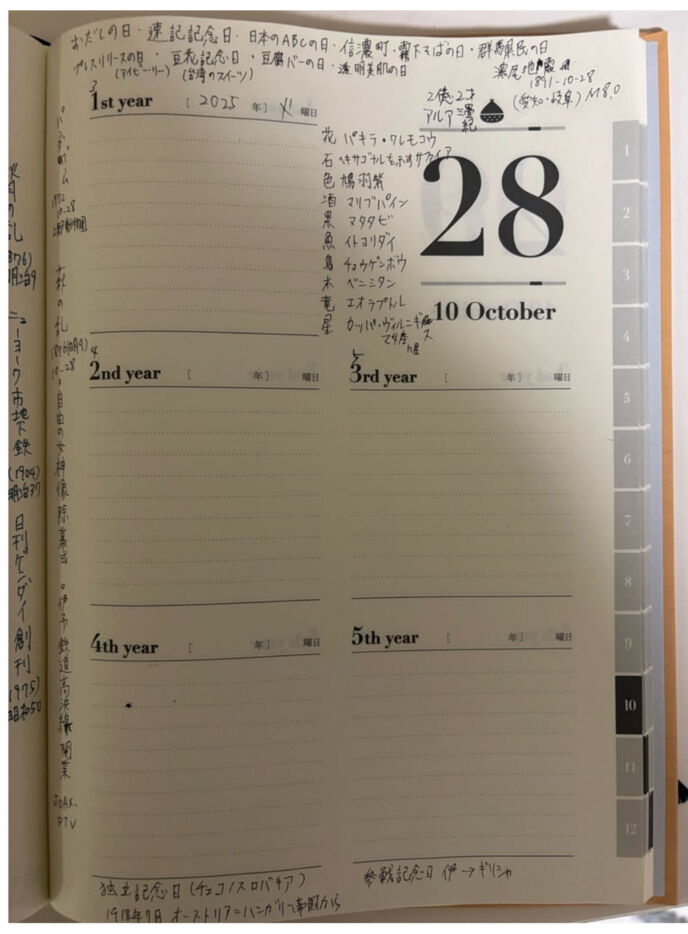 おだしの日・速記記念日・日本のABCの日・信濃町・霧下そばの日・群馬県民の日
プレスリリースの日・豆花記念日・豆腐バーの日・透明美肌の日
(アイビー・リー) (台湾のスイーツ)
濃尾地震
1891-10-28
(愛知・岐阜) M8.0
3
1st year [ 2025 年] 火 曜日
2億2才
アルア 紀
花 パキラ・ワレモコウ
石 ヘキサゴナルを示すサファイア
色 鳩羽紫
酒 マリブパイン
果 マタタビ
魚 イトヨリダイ
鳥 チョウゲンボウ
木 ベニシタン
竜 エオラプトル
星 カッパ・ヴィルギニス
28
10 October
4
2nd year [ 年] 曜日
5
3rd year [ 年] 曜日
4th year [ 年] 曜日
5th year [ 年] 曜日
独立記念日(チェコ/スロバキア)
1918年 オーストリア=ハンガリー帝国から
参戦記念日 伊→ギリシャ
1972
10-28
上野動物園
萩の乱
1876(明治9)
10-28
。自由の女神像除幕式
。伊予鉄道高浜線開業
JOAX、
PTV
の乱
(1876)
明治9
ニューヨーク市地下鉄
(1904)
明治37
日刊ゲンダイ創刊
(1975)
昭和50
1
2
3
4
5
6
7
8
9
10
11
12